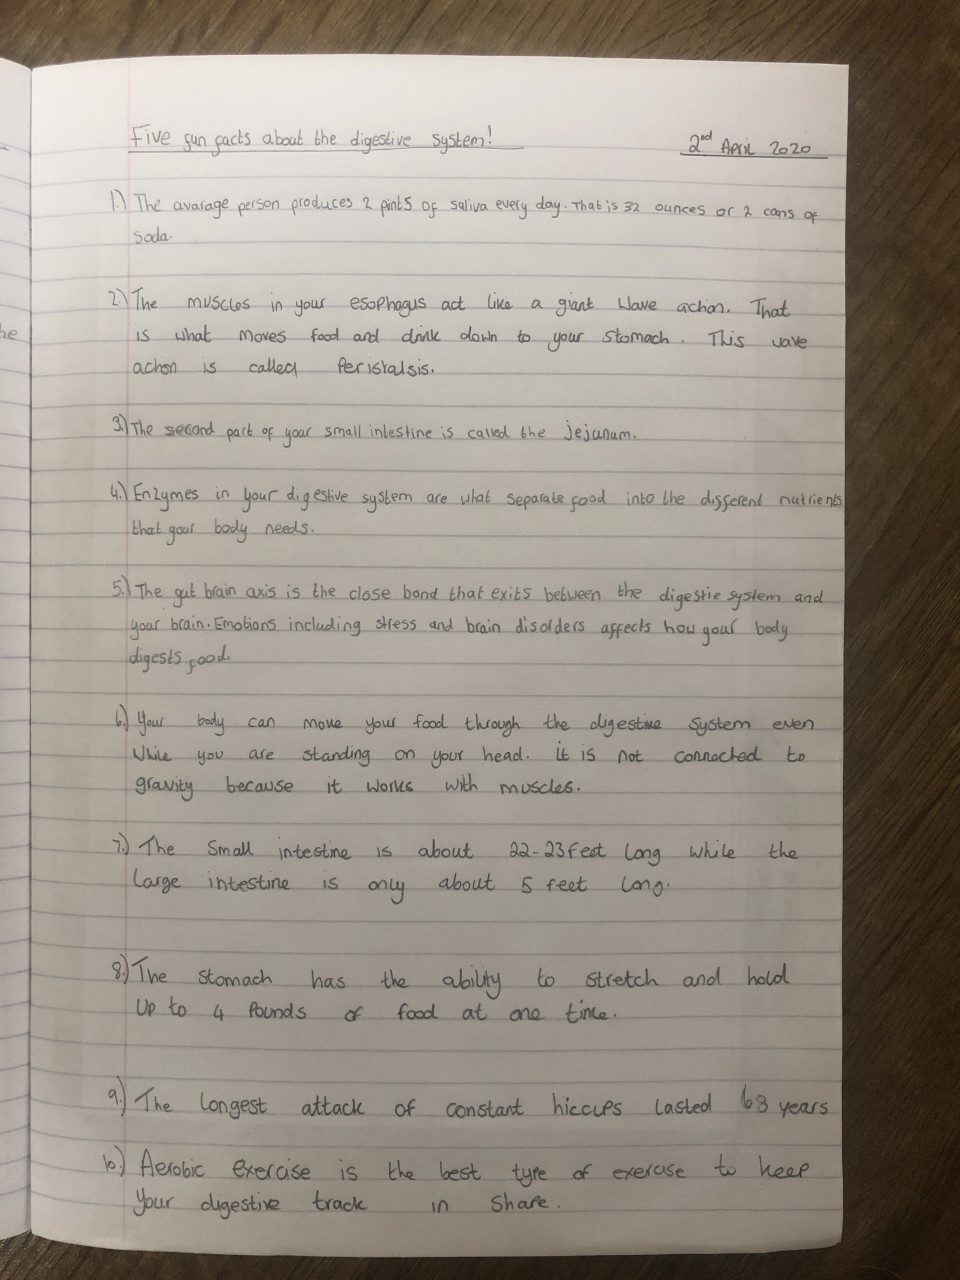 Five fun facts about the digestive system!
2nd April 2020
1.) The avarage person produces 2 pints of saliva every day. That is 32 ounces or 2 cans of
soda.
2) The muscles in your esophagus act like a giant wave action. That
is what moves food and drink down to your stomach. This wave
action is called Peristalsis.
3.) The second part of your small intestine is called the jejunum.
4.) Enzymes in your digestive system are what separate food into the different nutrients
that your body needs.
5.) The gut brain axis is the close bond that exits between the digestie system and
your brain. Emotions including stress and brain disorders affects how your body
digests food.
6.) Your body can move your food through the digestive system even
while you are standing on your head. it is not connected to
gravity because it works with muscles.
7.) The small intestine is about 22-23 feet long while the
large intestine is only about 5 feet long.
8.) The stomach has the ability to stretch and hold
up to 4 pounds of food at one time.
9.) The longest attack of constant hiccups lasted 68 years
10.) Aerobic exercise is the best type of exercise to keep
your digestive track in shape.
he